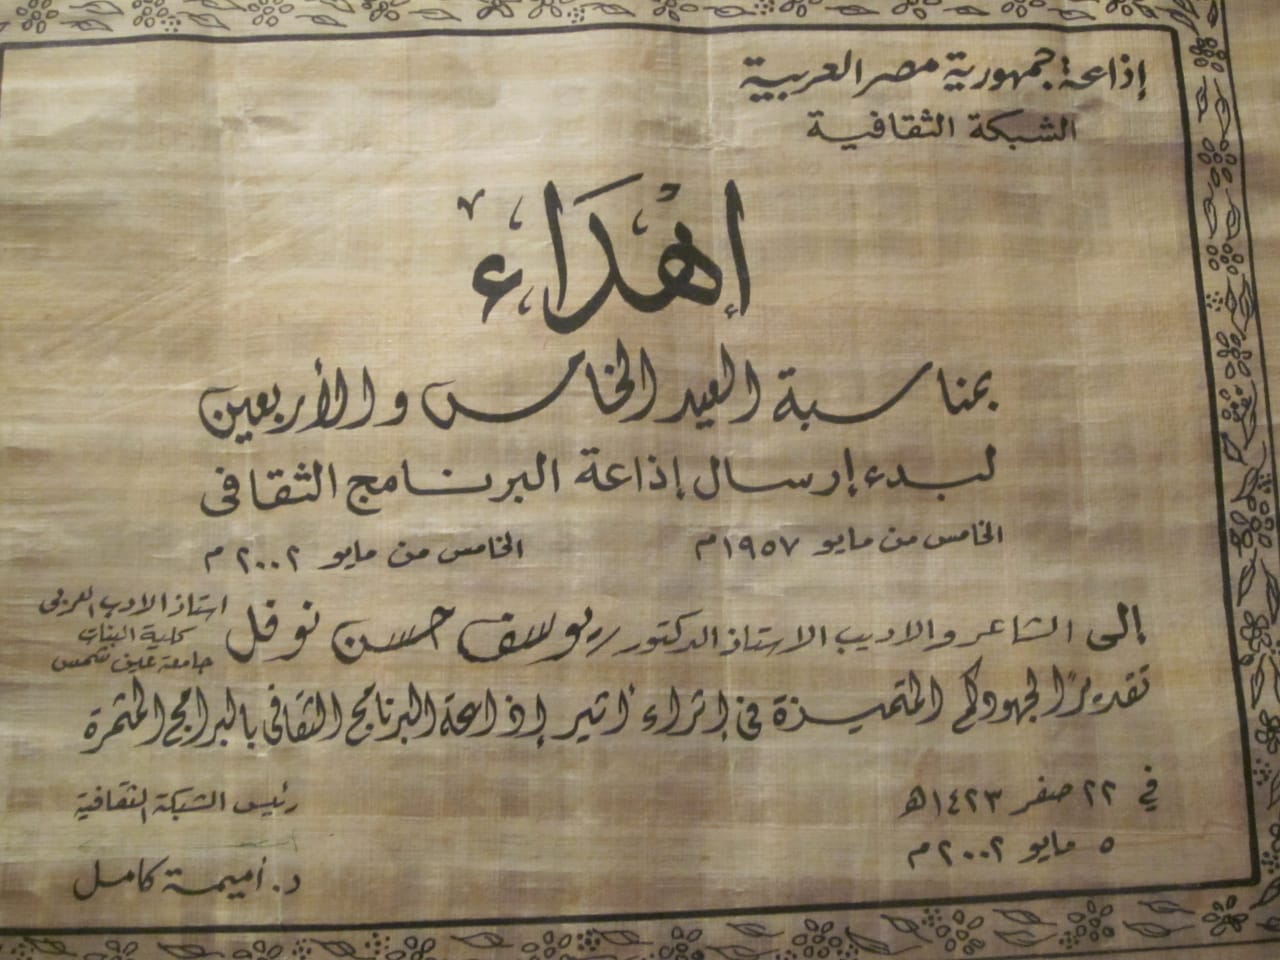 إذاعة جمهورية مصر العربية
الشبكة الثقافية
إهْدَاء
بمناسبة العيد الخامس والأربعين
لبدء إرسال إذاعة البرنامج الثقافى
الخامس من مايو ١٩٥٧م الخامس من مايو ٢٠٠٢ م
إلى الشاعر والاديب الاستاذ الدكتور يوسف حسن نوفل
استاذ الادب العربى
كلية البنات
جامعة عين شمس
تقديرًا لجهودكم المتميزة فى إثراء أثير إذاعة البرنامج الثقافى بالبرامج المثمرة
في ٢٢ صفر ١٤٢٣هـ
٥ مايو ٢٠٠٢م
رئيس الشبكة الثقافية
د. أميمة كامل